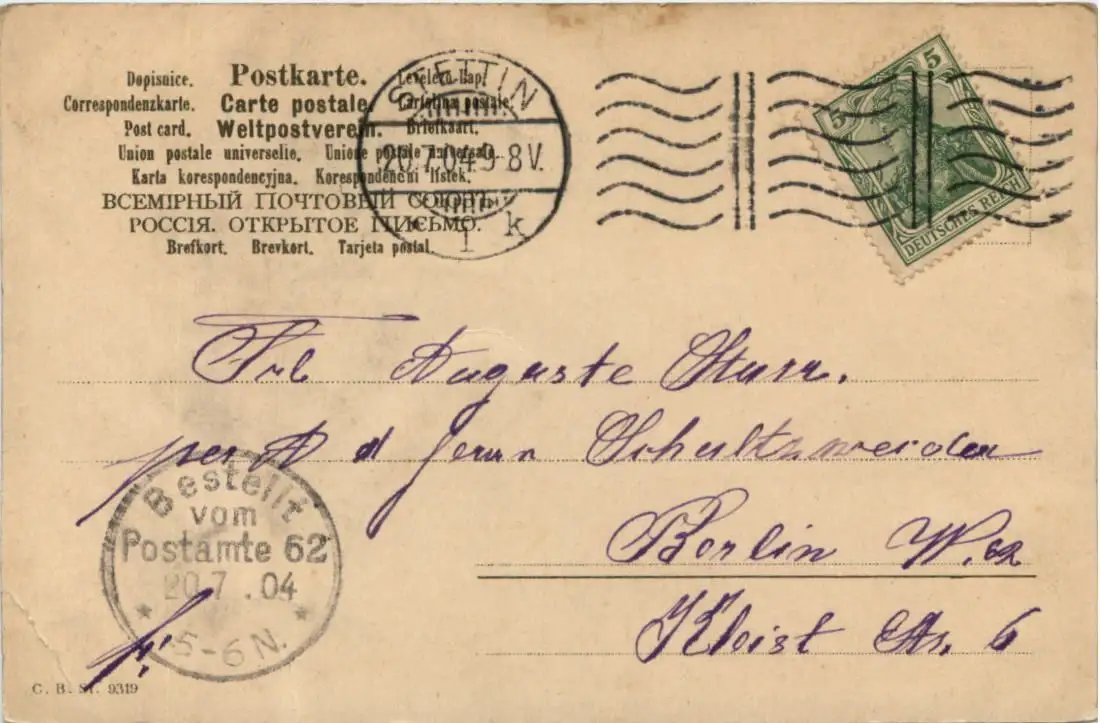 Dopisnice. Postkarte. Levelező-Lap.
Correspondenzkarte. Carte postale. Cartolina postale.
Post card. Weltpostverein. Briefkaart.
Union postale universelle. Unione postale universale.
Karta korespondencyjna. Korespondencni listek.
ВСЕМІРНЫЙ ПОЧТОВЫЙ СОЮЗЪ.
РОССІЯ. ОТКРЫТОЕ ПИСЬМО.
Brefkort. Brevkort. Tarjeta postal.
STETTIN
20.7.04.9-8V.
1 k
5 5
DEUTSCHES REICH
Frl Auguste
per A d Herrn
Berlin W. 62
Kleist Str. 6
Bestellt
vom
Postamte 62
20.7.04
5-6N.
C. B. St. 9319